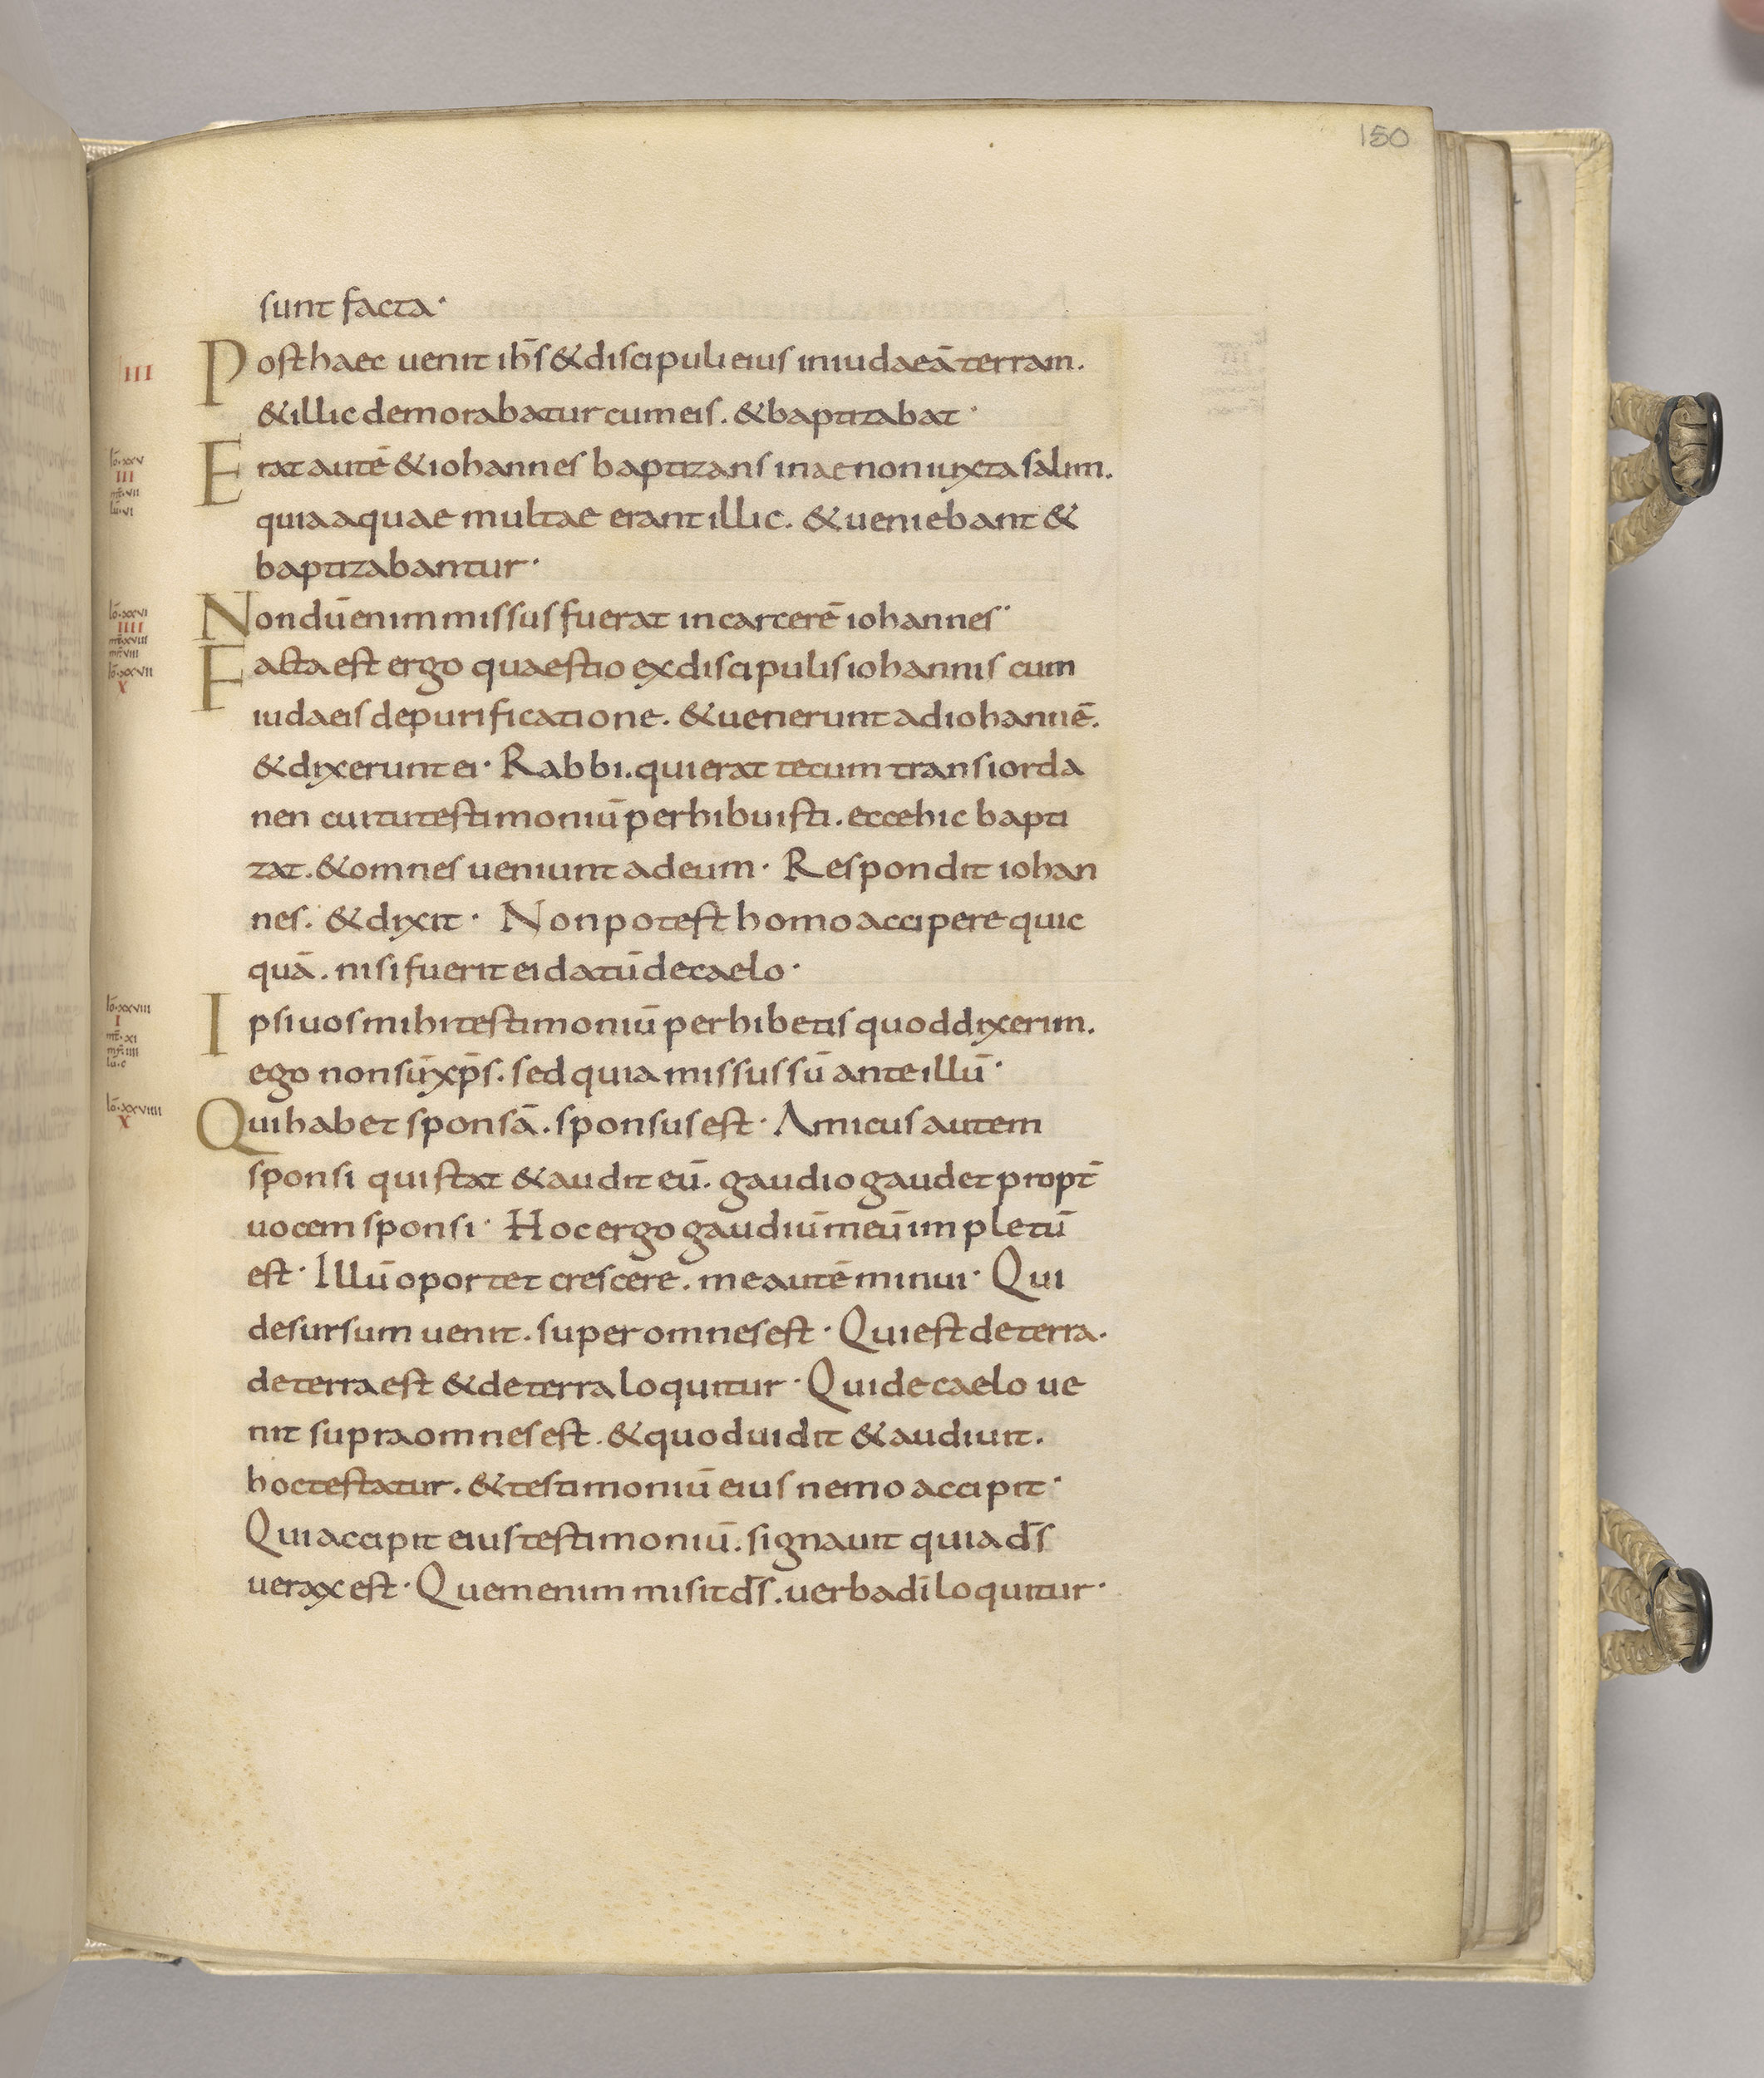 150
sunt facta·
III
Posthaec uenit ihs̄ & discipuli eius in iudaeā terram.
& illic demorabatur cum eis. & baptizabat·
Iō·xxv
III
mt̄·vii
lū·vi
Erat autē & iohannes baptizans in aenon iuxta salim.
quia aquae multae erant illic. & ueniebant &
baptizabantur·
Iō·xxvi
IIII
mt̄·xviii
mr̄·viii
Nondū enim missus fuerat in carcerē iohannes·
Iō·xxvii
X
Facta est ergo quaestio ex discipulis iohannis cum
iudaeis de purificatione. & uenerunt ad iohannē.
& dixerunt ei· Rabbi. qui erat tecum trans iorda
nen cui tu testimoniū perhibuisti. ecce hic bapti
zat. & omnes ueniunt ad eum· Respondit iohan
nes. & dixit· Non potest homo accipere quic
quā. nisi fuerit ei datū de caelo·
Iō·xxviii
I
mt̄·xi
mr̄·iiii
lū·c
Ipsi uos mihi testimoniū perhibetis quod dixerim.
ego non sū xp̄s. sed quia missus sū ante illū·
Iō·xxviiii
X
Qui habet sponsā. sponsus est· Amicus autem
sponsi qui stat & audit eū. gaudio gaudet propt̄
uocem sponsi· Hoc ergo gaudiū meū impletū
est· Illū oportet crescere. me autē minui· Qui
desursum uenit. super omnes est· Qui est de terra.
de terra est & de terra loquitur· Qui de caelo ue
nit supra omnes est. & quod uidit & audiuit.
hoc testatur. & testimoniū eius nemo accipit·
Qui accipit eius testimoniū. signauit quia ds̄
uerax est· Quem enim misit ds̄. uerba dī loquitur·